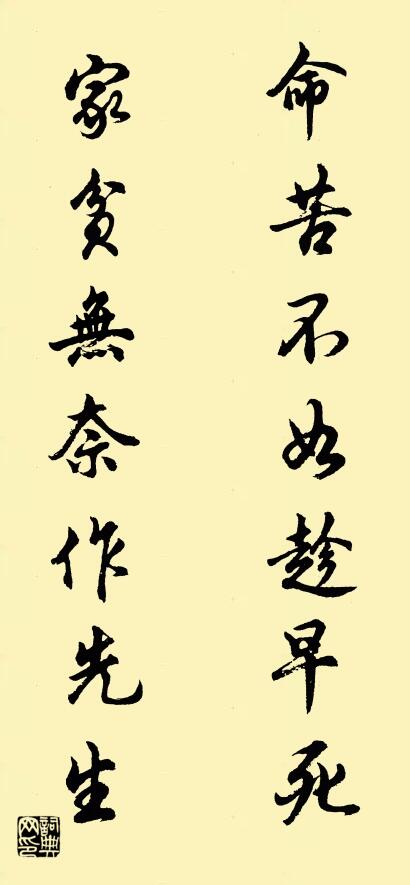 命苦不如趁早死
家貧無奈作先生
詞典網印